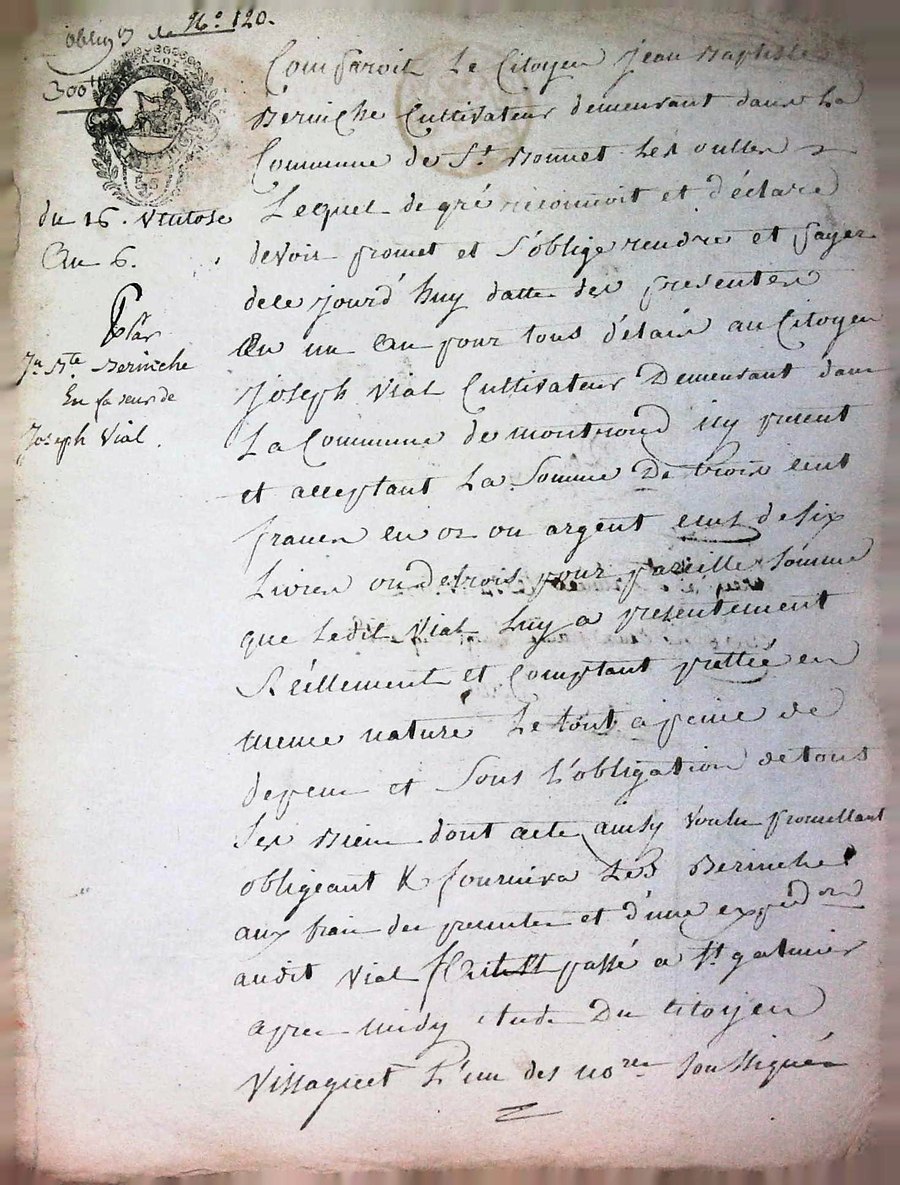 N.º 120.
300ᵗᵗ
du 16. Ventose
An 6.
Par
Jn Bte Berinche
En faveur de
Joseph Vial.
Comparoit Le Citoyen Jean Baptiste
Berinche Cultivateur demeurant dans La
Commune de St Bonnet Les oulles
Lequel de gré reconnoit et déclare
devoir promet et S'oblige rendre et payer
de ce jourd'huy datte des presentes
En un an pour tous délais au Citoyen
Joseph Vial Cultivateur Demeurant dans
La Commune de montrond icy present
et acceptant La Somme De trois cent
francs en or ou argent ecus de six
Livres ou de trois pour pareille Somme
que Ledit Vial Luy a presentement
Réellement et Comptant prettée en
meme nature Le tout a peine de
depens et Sous L'obligation de tous
Ses Biens dont acte ainsy voulu promettant
obligeant & fournira Led Berinche
aux frais des presentes et d'une expedon
audit Vial fait et passé a St galmier
apres midy etude Du Citoyen
Villaguet L'un des nores Soussignés